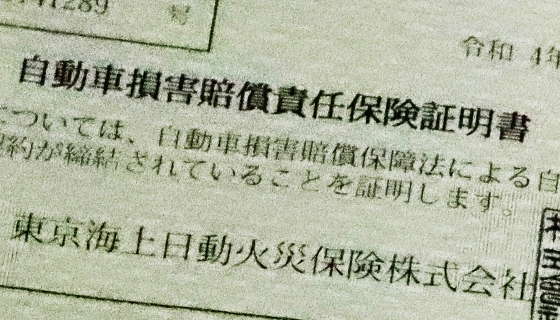 号
令和 4年
自動車損害賠償責任保険証明書
ついては、自動車損害賠償保障法による自
約が締結されていることを証明します。
東京海上日動火災保険株式会社